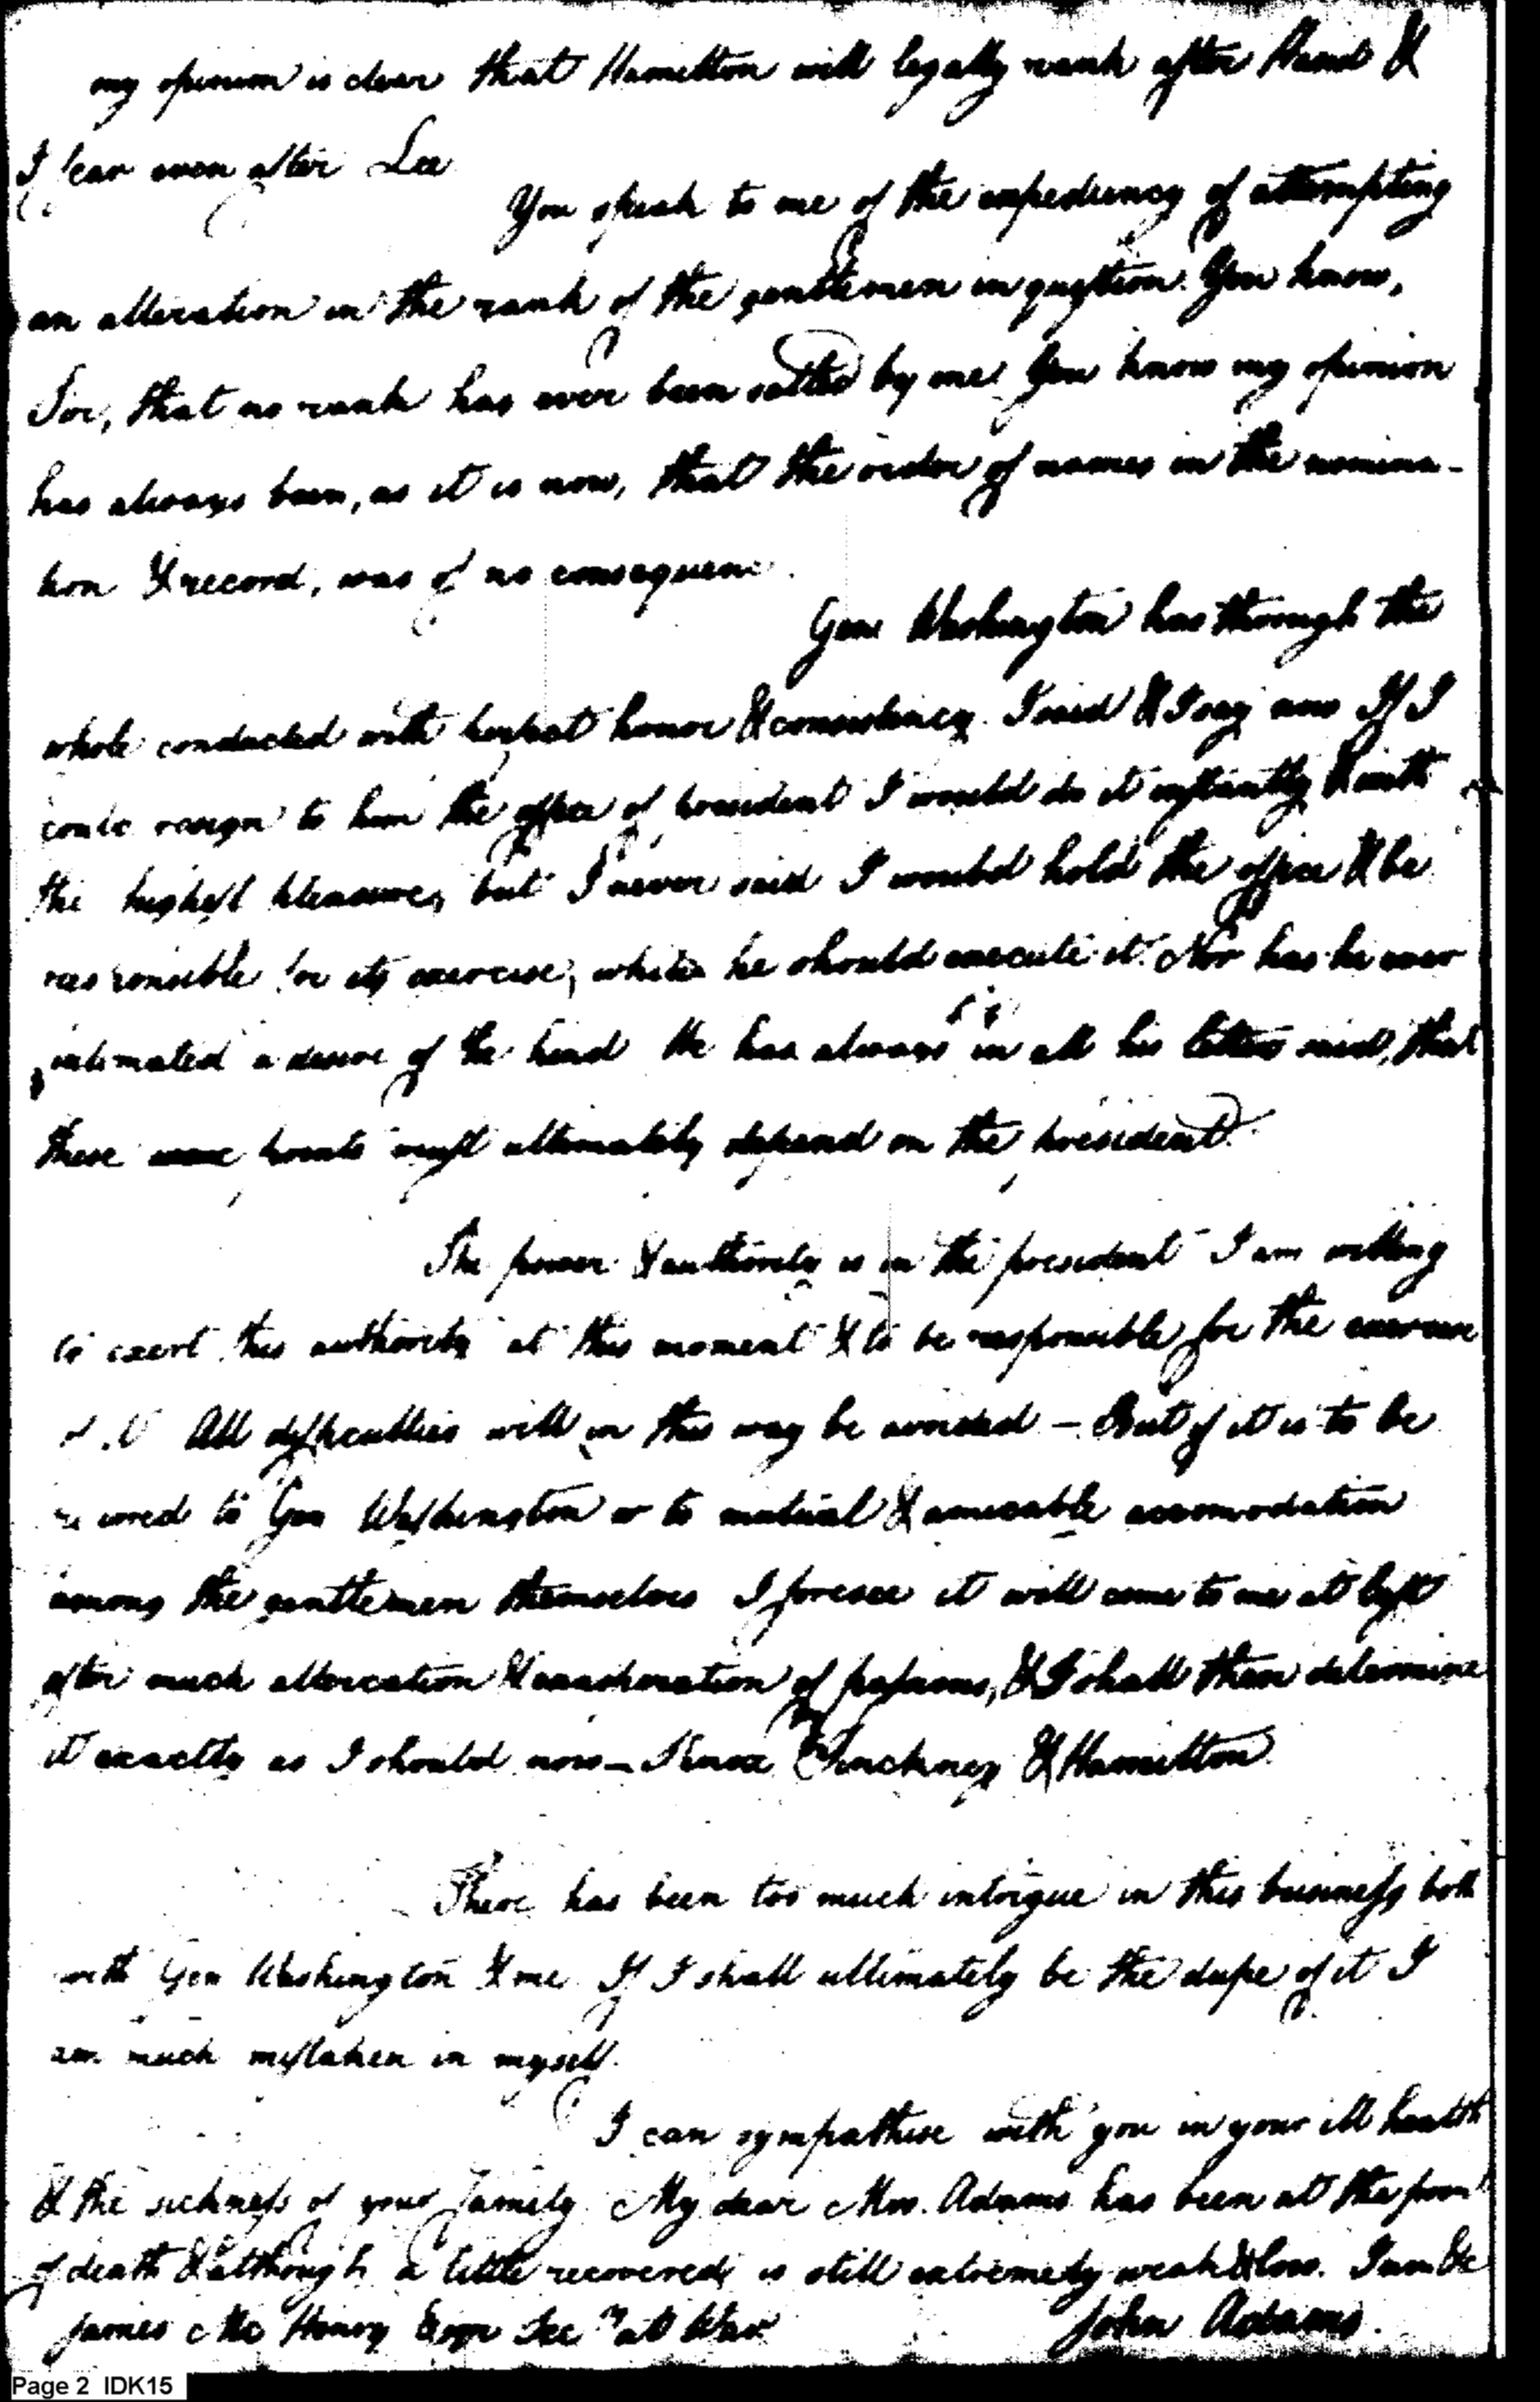 my opinion is clear that Hamilton will legally rank after Hand &
I fear even after Lee
You speak to me of the expediency of attempting
an alteration in the rank of the gentlemen in question. You know,
Sir, that no rank has ever been settled by me. You know my opinion
has always been, as it is now, that the order of names in the nomina-
tion & record, was of no consequence.
Gen Washington has through the
whole conducted with perfect honor & consistency. I said & I say now If I
could resign to him the office of president I would do it instantly & with
the highest pleasure, but I never said I would hold the office & be
responsible for its exercise, while he should execute it. Nor has he ever
intimated a desire of the kind He has always in all his letters said, that
these points must ultimately depend on the president.
The power & authority is in the president I am willing
to exert this authority at this moment & to be responsible for the exercise
of it All difficulties will in this way be avoided — But if it is to be
referred to Gen Washington or to mutual & amicable accomodation
among the gentlemen themselves I foresee it will come to me at last
after much altercation & exasperation of passions, & I shall then determine
it exactly as I should now — Knox Pinckney & Hamilton.
There has been too much intrigue in this business both
with Gen Washington & me If I shall ultimately be the dupe of it I
am much mistaken in myself.
I can sympathise with you in your ill health
& the sickness of your family. My dear Mrs. Adams has been at the point
of death & although a little recovered, is still extremely weak & low. I am &c
James Mc Henry Esqr Secry at War John Adams.
Page 2 IDK15